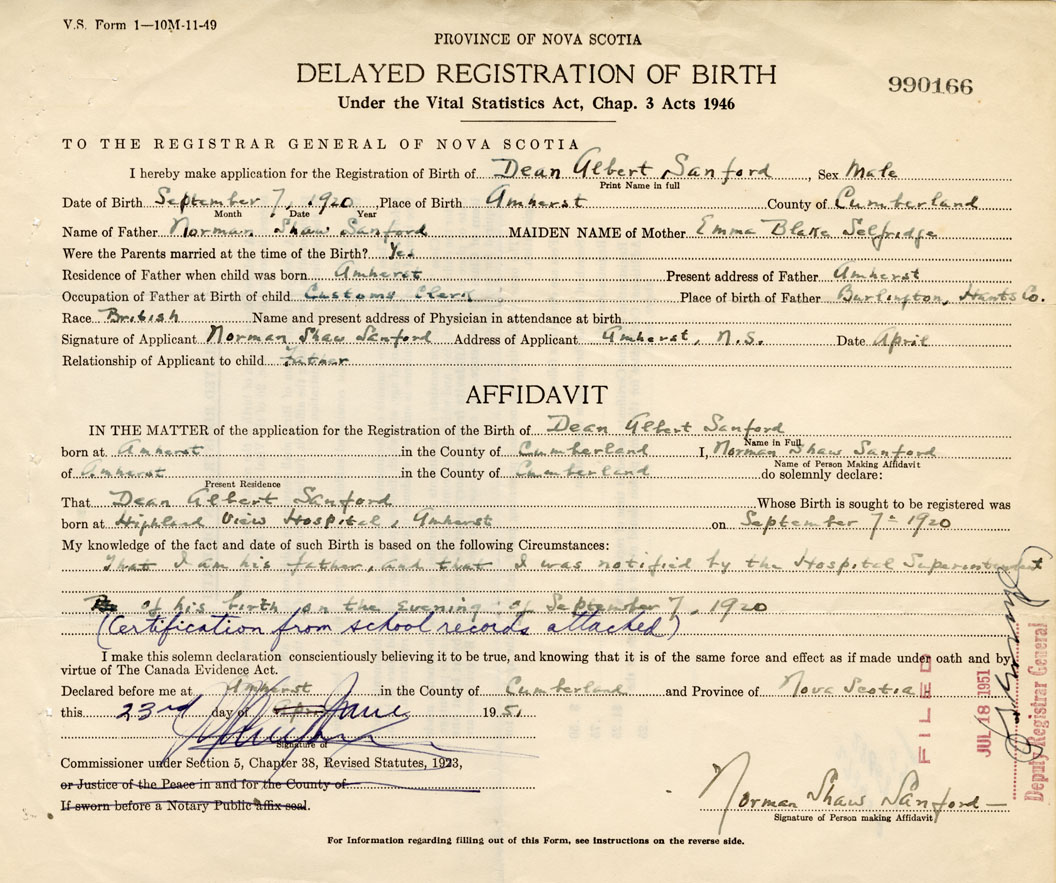 V.S. Form 1—10M-11-49
PROVINCE OF NOVA SCOTIA
DELAYED REGISTRATION OF BIRTH
990166
Under the Vital Statistics Act, Chap. 3 Acts 1946
TO THE REGISTRAR GENERAL OF NOVA SCOTIA
I hereby make application for the Registration of Birth of Dean Albert Sanford, Sex Male
Print Name in full
Date of Birth September 7, 1920, Place of Birth Amherst County of Cumberland
Month Date Year
Name of Father Norman Shaw Sanford MAIDEN NAME of Mother Emma Blake Selfridge
Were the Parents married at the time of the Birth? Yes
Residence of Father when child was born Amherst Present address of Father Amherst
Occupation of Father at Birth of child Customs Clerk Place of birth of Father Burlington, Hants Co.
Race British Name and present address of Physician in attendance at birth
Signature of Applicant Norman Shaw Sanford Address of Applicant Amherst, N.S. Date April
Relationship of Applicant to child Father
AFFIDAVIT
IN THE MATTER of the application for the Registration of the Birth of Dean Albert Sanford
Name in Full
born at Amherst in the County of Cumberland I, Norman Shaw Sanford
Name of Person Making Affidavit
of Amherst in the County of Cumberland do solemnly declare:
Present Residence
That Dean Albert Sanford Whose Birth is sought to be registered was
born at Highland View Hospital, Amherst on September 7th 1920
My knowledge of the fact and date of such Birth is based on the following Circumstances:
That I am his father, and that I was notified by the Hospital Superintendent
of his birth on the evening of September 7, 1920
(Certification from school records attached)
I make this solemn declaration conscientiously believing it to be true, and knowing that it is of the same force and effect as if made under oath and by
virtue of The Canada Evidence Act.
Declared before me at Amherst in the County of Cumberland and Province of Nova Scotia
this 23rd day of June 1951
Signature of
Commissioner under Section 5, Chapter 38, Revised Statutes, 1923,
or Justice of the Peace in and for the County of
If sworn before a Notary Public affix seal.
Norman Shaw Sanford
Signature of Person making Affidavit
For Information regarding filling out of this Form, see instructions on the reverse side.
FILED
JUL 18 1951
Deputy Registrar General